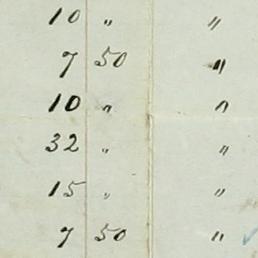 10 " "
7 50 "
10 " "
32 " "
15 " "
7 50 "